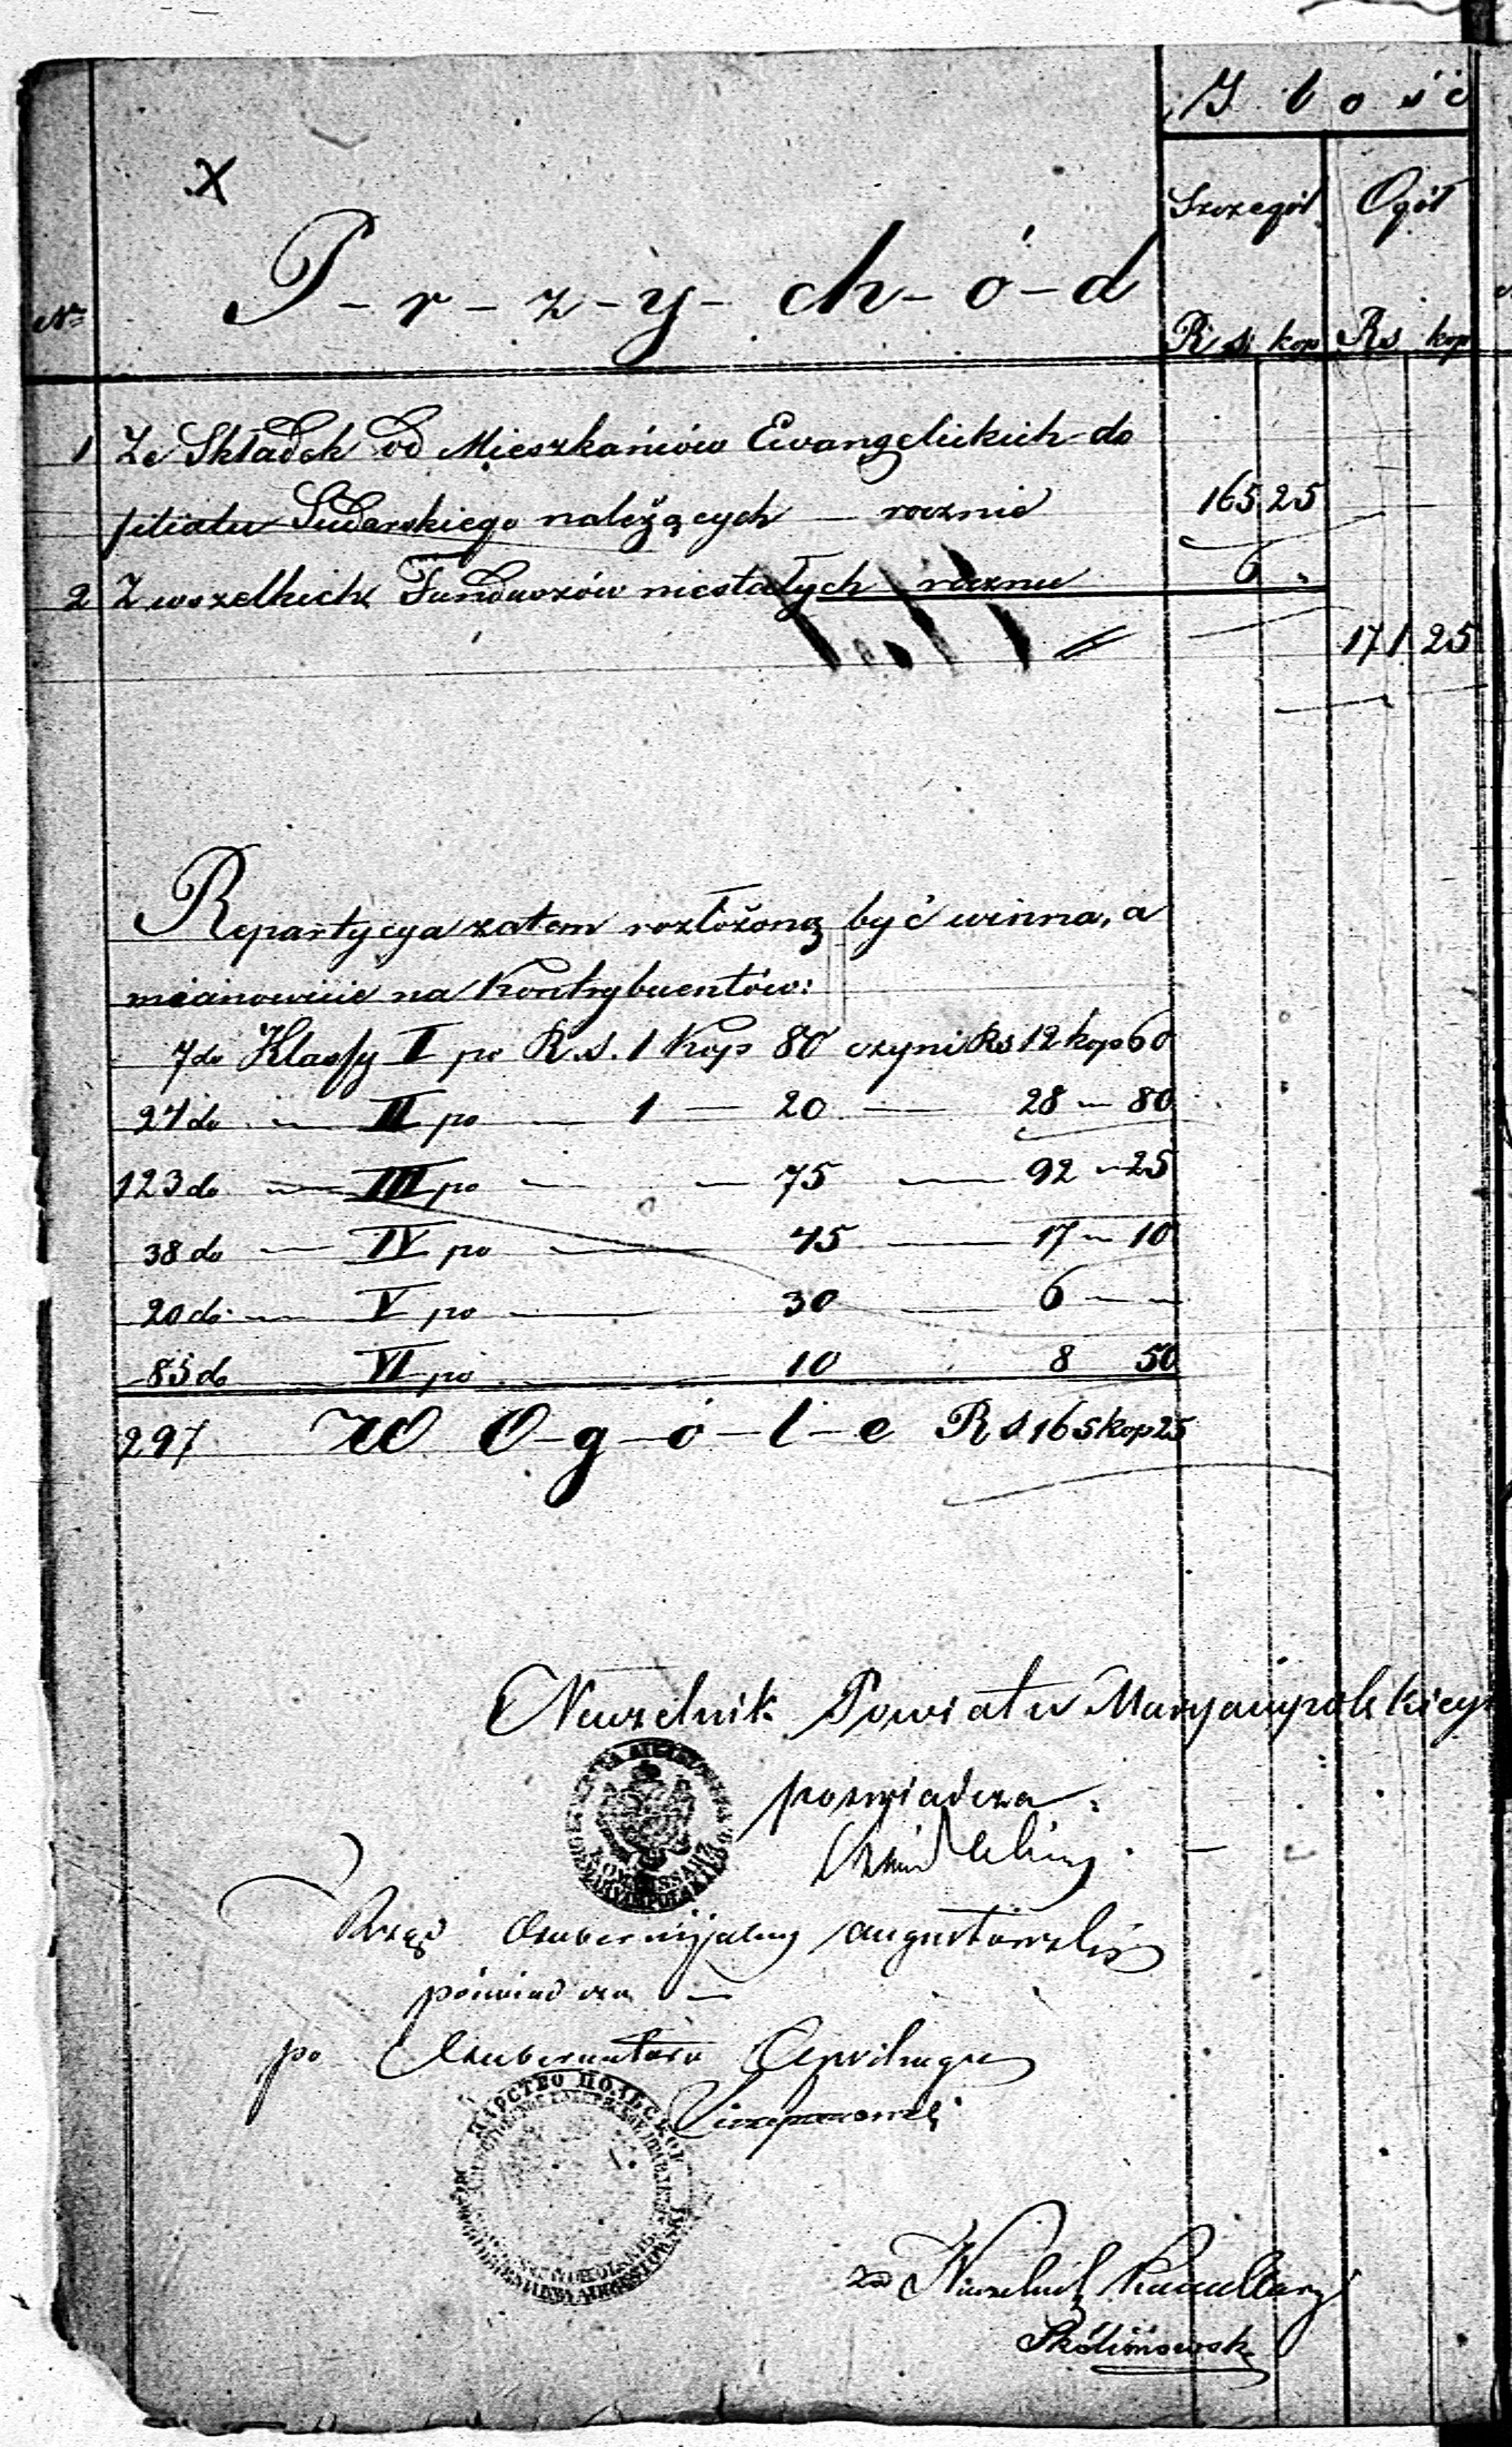 Ilość
X
Szczegół Ogół
P-r-z-y-ch-ó-d
No
Rs kop Rs kop
1 Ze Składek od Mieszkańców Ewangelickich do
filiału Sudarskiego należących — rocznie 165 25
2 Z wszelkich Funduszów niestałych rocznie 6 "
171 25
Repartycya zatem rozłożoną być winna, a
mianowicie na Kontrybuentów:
7 do Klassy I po R.s. 1 Kop 80 czyni Rs 12 kop 60
24 do — II po — 1 — 20 — 28 — 80
123 do — III po — — 75 — 92 — 25
38 do — IV po — 45 — 17 — 10
20 do — V po — 30 — 6 — —
85 do — VI po — 10 8 50
297 W O-g-ó-l-e Rs 165 kop 25
Naczelnik Powiatu Maryampolskiego
poświadcza
Rząd Gubernijalny Augustowski
poświadcza —
po Gubernatora Cywilnego
ЦАРСТВО ПОЛЬСКОЕ
za Naczelnik Kancellaryi
Skolimowsk